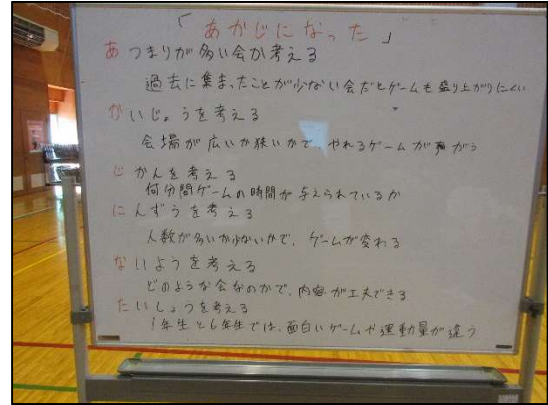 「あかじになった」
あつまりが多い会か考える
過去に集まったことが少ない会だとゲームも盛り上がりにくい
かいじょうを考える
会場が広いか狭いかで、やれるゲームがちがう
じかんを考える
何分間ゲームの時間が与えられているか
にんずうを考える
人数が多いか少ないかで、ゲームが変わる
ないようを考える
どのような会なのかで、内容が工夫できる
たいしょうを考える
1年生と6年生では、面白いゲームや運動量が違う